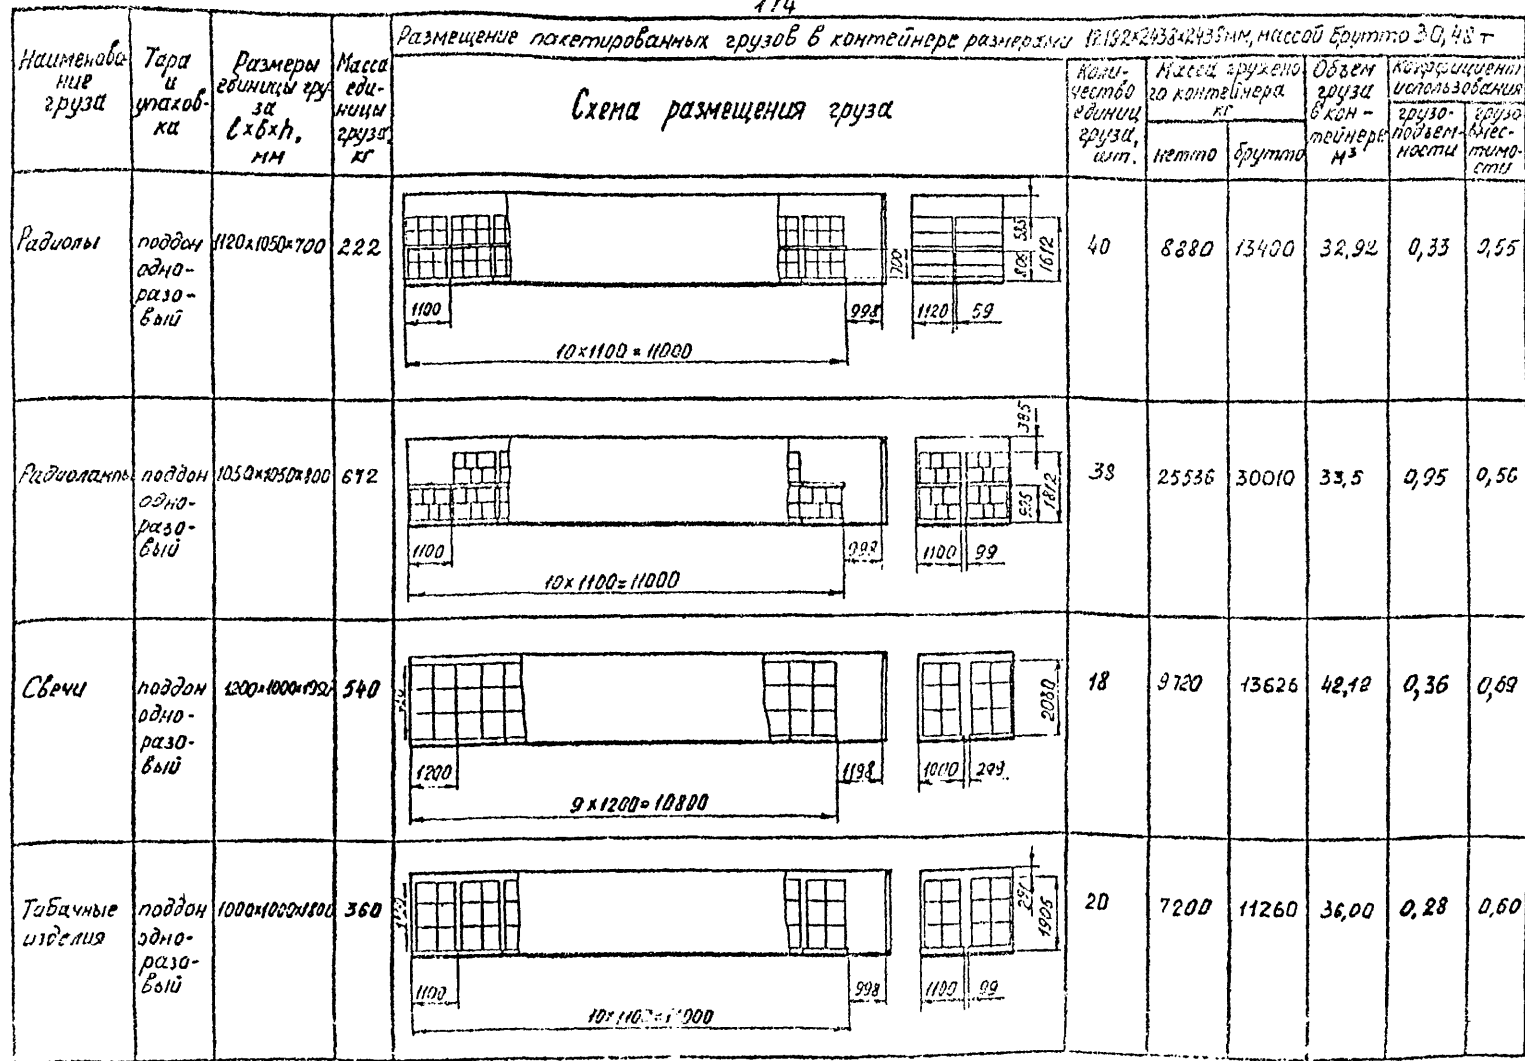 174
Размещение пакетированных грузов в контейнере размерами 12192×2438×2438мм, массой брутто 30,48 т
Наименова-
ние
груза
Тара
и
упаков-
ка
Размеры
единицы гру-
за
l×b×h,
мм
Масса
еди-
ницы
груза,
кг
Схема размещения груза
Коли-
чество
единиц
груза,
шт.
Масса гружено-
го контейнера
кг
нетто
брутто
Объем
груза
в кон-
тейнере
м³
Коэффициент
использования
грузо-
подъем-
ности
грузо-
вмес-
тимо-
сти
Радиолы
поддон
одно-
разо-
вый
1120×1050×700
222
1100
998
10×1100=11000
700
1120
59
585
806
1612
40
8880
13400
32,92
0,33
0,55
Радиолампы
поддон
одно-
разо-
вый
1050×1050×800
672
1100
998
10×1100=11000
1100
99
385
1812
38
25536
30010
33,5
0,95
0,56
Свечи
поддон
одно-
разо-
вый
540
1200
1198
9×1200=10800
1000
299
2080
18
9720
13626
42,12
0,36
0,69
Табачные
изделия
поддон
одно-
разо-
вый
1000×1000×1800
360
1100
998
10×1100=11000
1100
99
291
1905
20
7200
11260
36,00
0,28
0,60